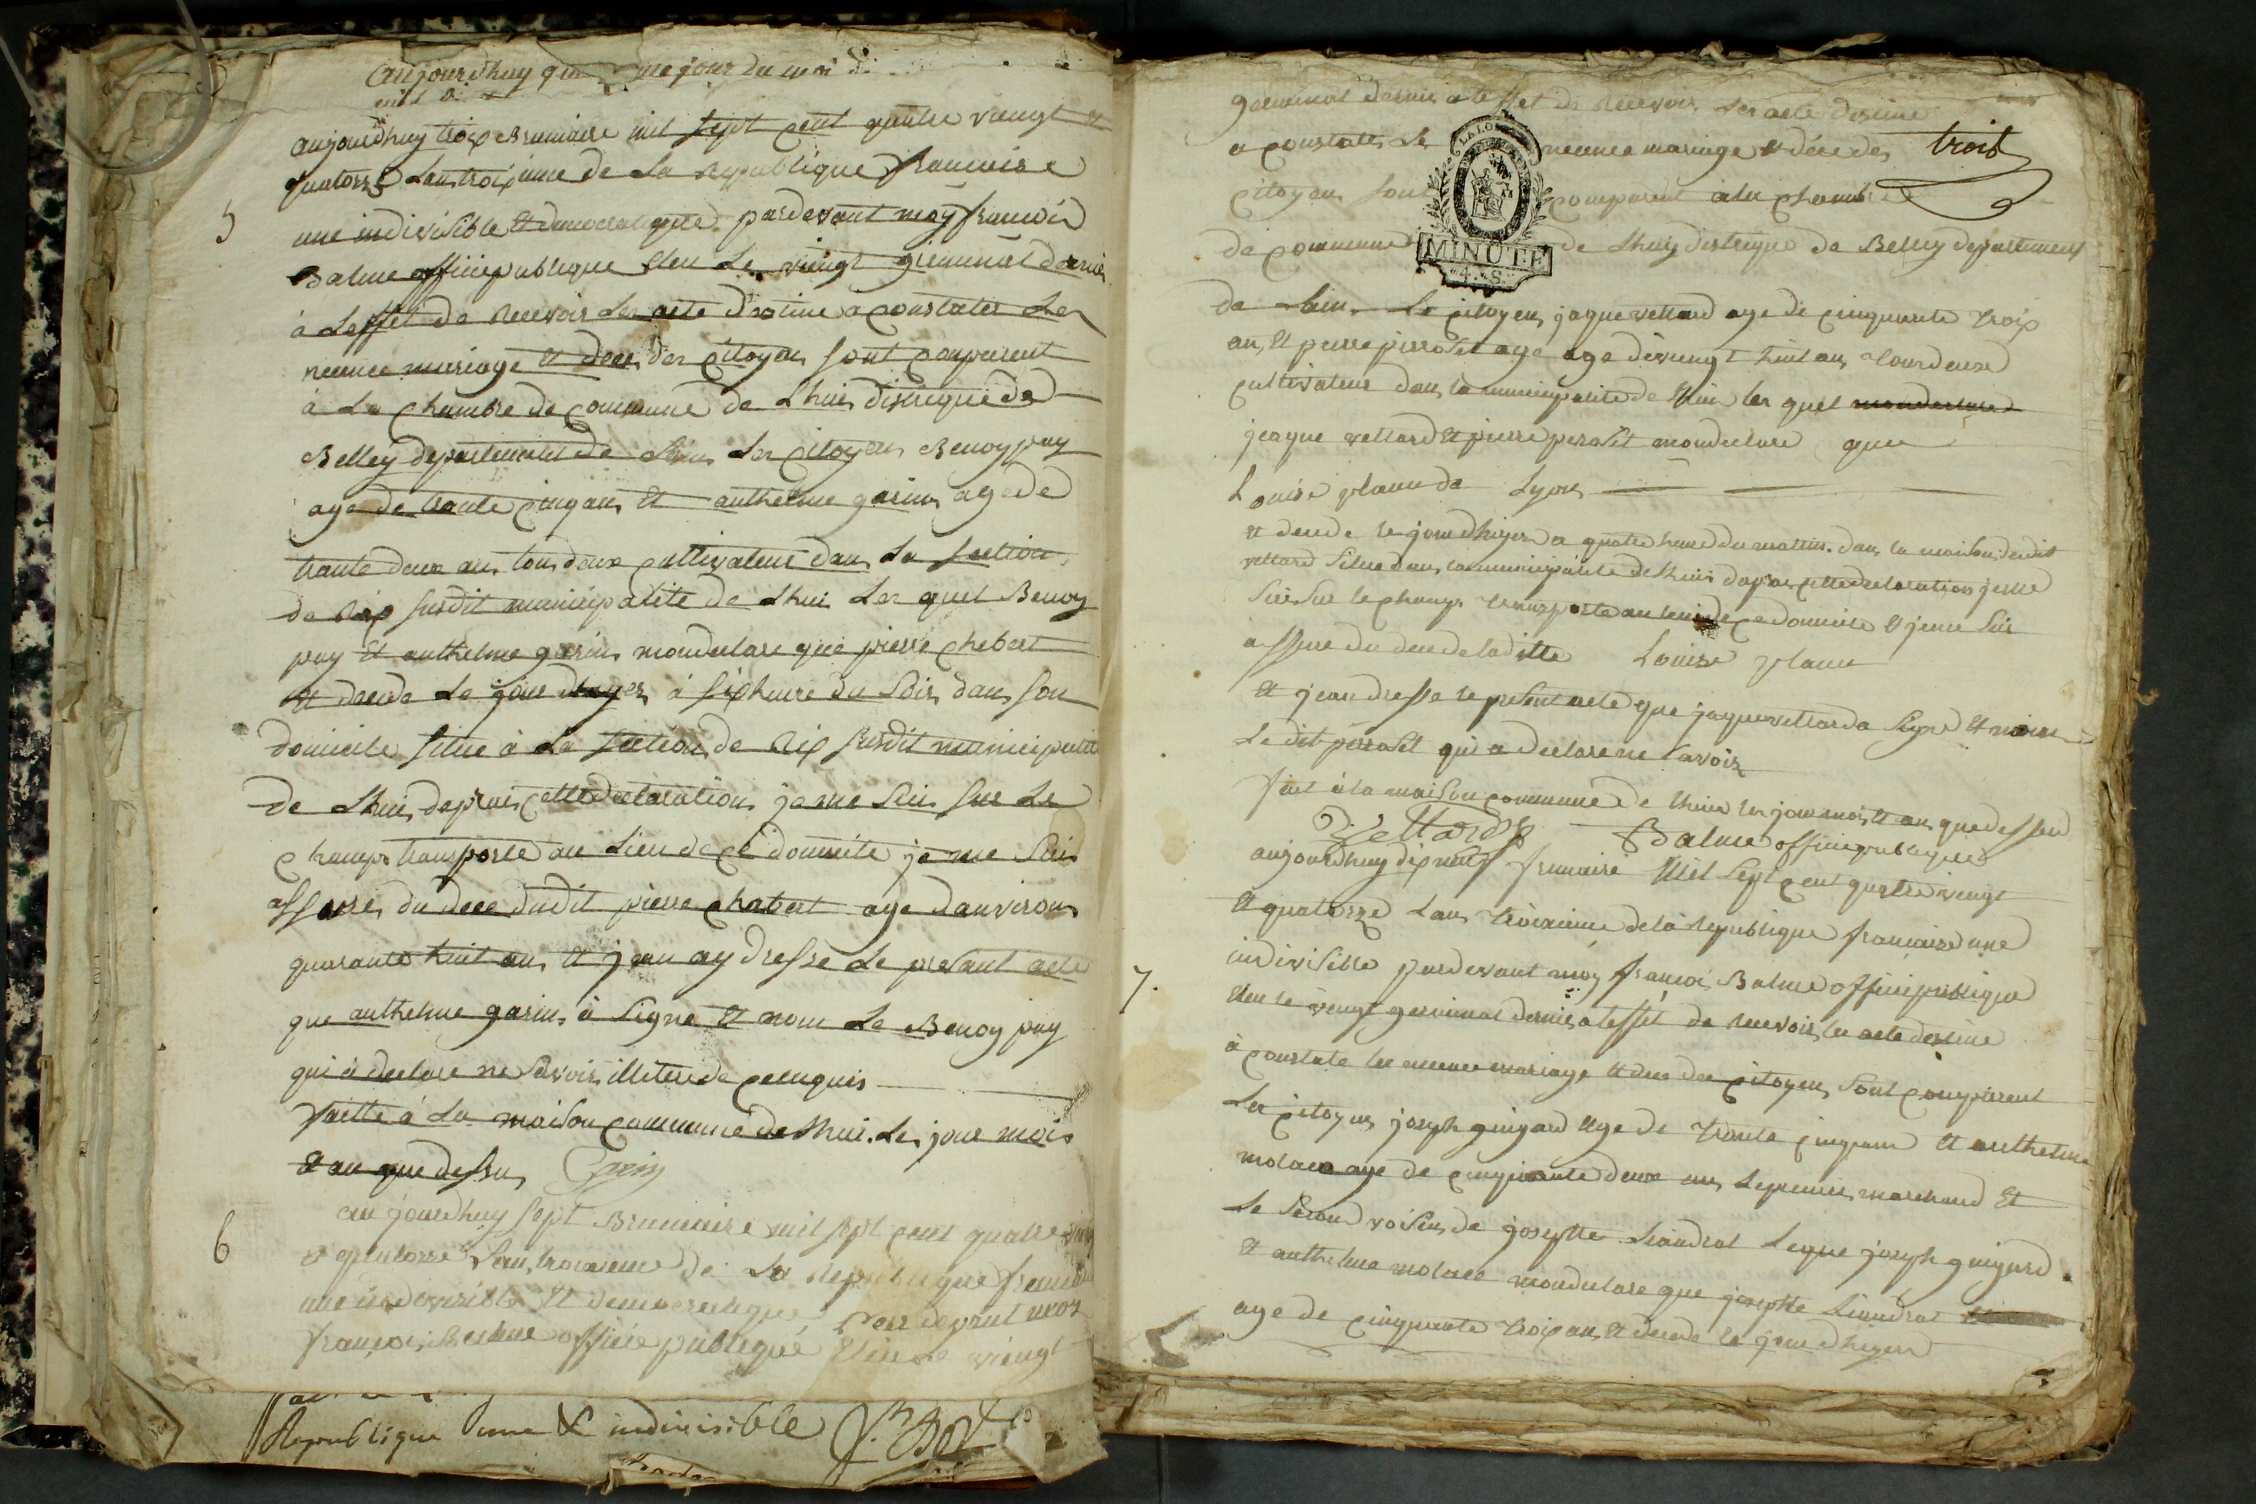 aujourdhuy jour du moi d
mil
aujourdhuy troix Brumaire mil sept cent quatre vingt et
quatorze Lan troixieme de La republique francaise
5
une indivisible et democratique pardevant moy francois
Balme officie publique Eleu Le vingt gierminal dernie
à Leffet de Recevoir Les acte destine a constater Les
neence mariage et dece des citoyen sont comparent
à La chambre de commune de Lhuis distrique de
Belley departement de Lain Les citoyen Benoy puy
age de trante cinq ans et anthelme garin age de
trante deux ans tous deux cultivateur dans La section
de Rix susdit municipalité de Lhui Les quel Benoy
puy et anthelme garin mondeclare que pierre chebert
et decede Le jour dhyer à six heure du Soir dans son
domicile situe à La section de Rix susdit municipalite
de Lhuis daprai cette declaration je me Suis sur Le
champ transporte au Lieu de ce domicile je me Suis
assure du dece dudit pierre chabert age danviron
quarante huit ans et jean ay dresse Le presant acte
que anthelme garin à Signe et nom Le Benoy puy
qui à declare ne Savoir illitere de ce enquis
faitte à La maison commune de Lhui. Les jour mois
et an que dessus Garin
6
aujourdhuy sept Brumaire mil sept cent quatre vingt
et quatorse Lan troixieme de La republique francaise
une indivisible et democratique pardevant moy
francois Balme officie publique Eleu Le vingt
Republique une & indivisible
germinal dernie a leffet de Recevoir Les acte destine
a constater Les neence mariage et dece des
trois
citoyen sont comparent a La chambre
LA LOI
MINUTE
4. S.
de commune de Lhuis distrique de Belley departement
de Lain. Le citoyen jaque vettard age de cinquante troix
an, et pierre perroset age age de vingt huit ans tous deux
cultivateur dans la municipalite de Lhui les quel mondeclare
jeaque vettard et pierre peroset mondeclare que
Louise plane de Lyon
et decede le jour dhyer a quatre heure du mattin dans la maison dudit
vettard Situe dans la municipalite de Lhuis daprai cette declaration je me
Suis Sur le champ transporte au lieu de ce domicile et je me Suis
assure du dece de laditte Louise plane
et jean dresse le present acte que jaque vettard a Signe et nom
Le dit perroset qui a declare ne Savoir
fait à la maison commune de Lhuis les jour mois et an que dessus
Vettard Balme officie publique
aujourdhuy dix neuf frumaire Mil Sept cent quatre vingt
et quatorze Lan troixieme de la republique francaise une
indivisible pardevant moy francois Balme officie publique
7.
Eleu le vingt germinal dernie a leffet de Recevoir les acte destine
à constate les neence mariage et dece des citoyen Sont comparent
Les citoyen joseph guigard age de trante cinq ans et anthelme
molace age de cinquante deux ans Le premier marchand et
Le Second voisin de josephte Liandrat Leque joseph guigard
et anthelme molace mondeclare que josephte Liandrat
age de cinquante troix an, et decede le jour dhyer